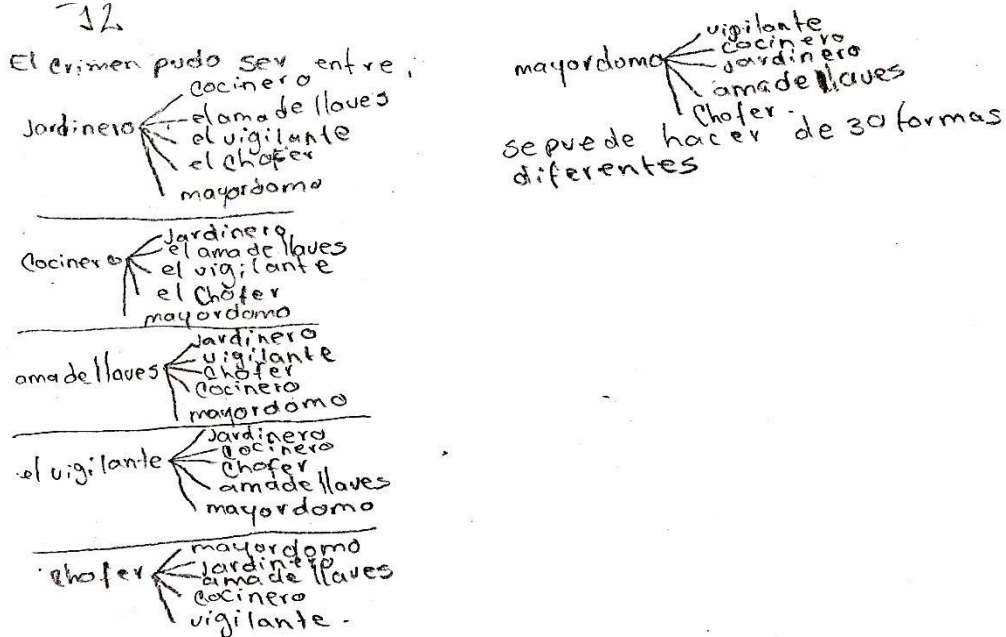 12
El crimen pudo ser entre,
Jardinero
cocinero
el ama de llaves
el vigilante
el chofer
mayordomo
Cocinero
Jardinero
el ama de llaves
el vigilante
el Chofer
mayordomo
ama de llaves
Jardinero
vigilante
chofer
Cocinero
mayordomo
el vigilante
Jardinero
Cocinero
Chofer
ama de llaves
mayordomo
Chofer
mayordomo
Jardinero
ama de llaves
Cocinero
vigilante.
mayordomo
vigilante
cocinero
Jardinero
ama de llaves
Chofer.
se puede hacer de 30 formas
diferentes